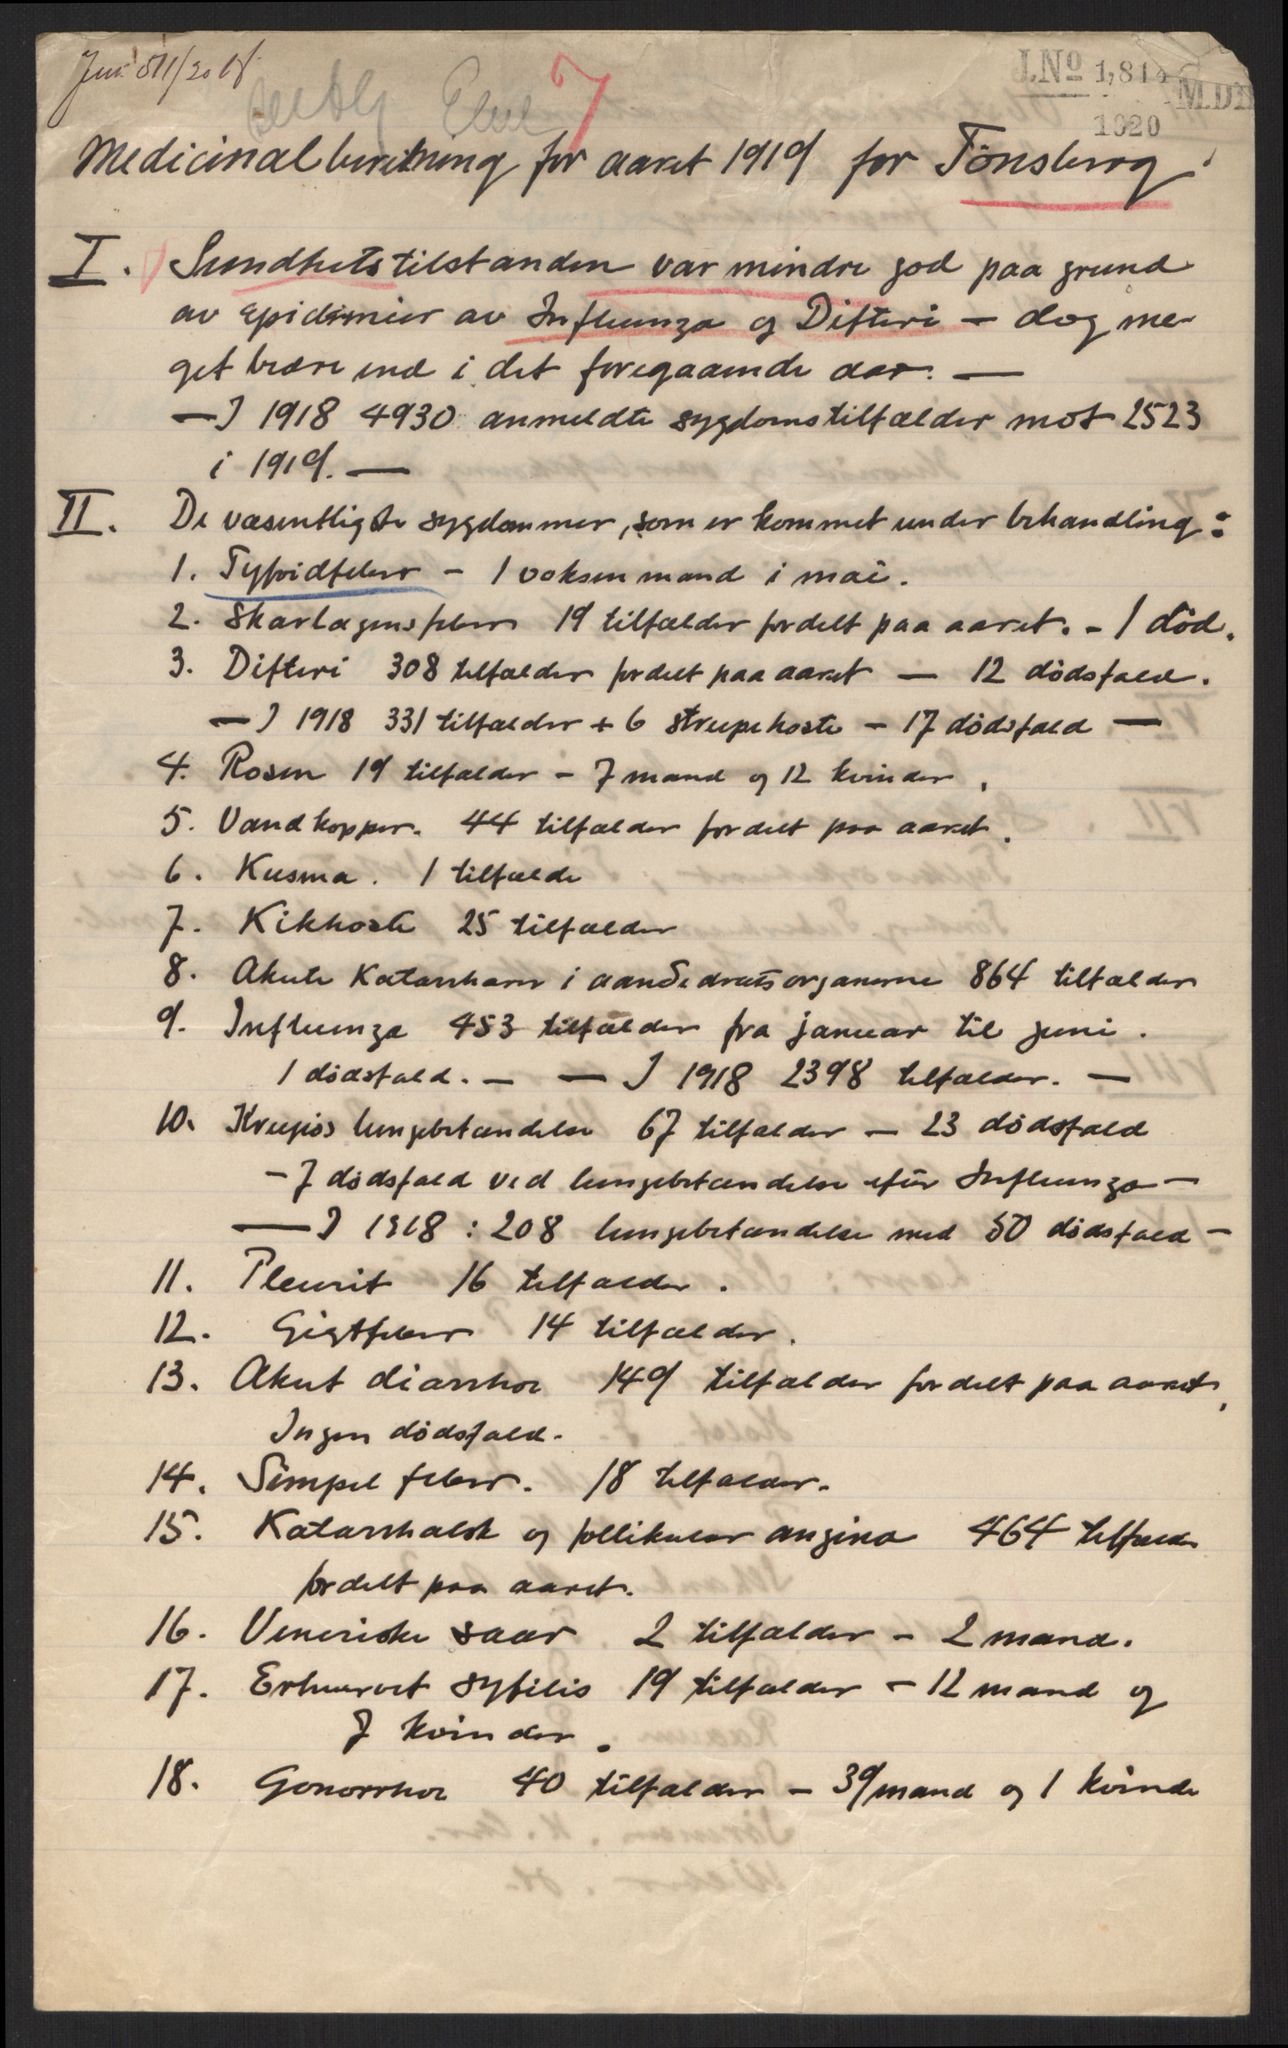 J.No 1,814
M.D.
1920
7
Medicinalberetning for aaret 1919 for Tönsberg.
I. Sundhetstilstanden var mindre god paa grund
av epidemier av Influenza og Difteri – dog me-
get bedre end i det foregaaende aar. —
— I 1918 4930 anmeldte sygdomstilfælder mot 2523
i 1919. —
II. De væsentligste sygdommer, som er kommet under behandling:
1. Tyfoidfeber – 1 voksen mand i mai.
2. Skarlagensfeber 19 tilfælder fordelt paa aaret. – 1 död.
3. Difteri 308 tilfælder fordelt paa aaret — 12 dödsfald.
— I 1918 331 tilfælder + 6 strupehoste – 17 dödsfald —
4. Rosen 19 tilfælder – 7 mand og 12 kvinder.
5. Vandkopper. 44 tilfælder fordelt paa aaret.
6. Kusma. 1 tilfælde
7. Kikhoste 25 tilfælder
8. Akute Katarrhaner i aandedrætsorganerne 864 tilfælder
9. Influenza 453 tilfælder fra januar til juni.
1 dödsfald. – — I 1918 2398 tilfælder. —
10. Krupøs lungebetændelse 67 tilfælder — 23 dödsfald
– 7 dödsfald ved lungebetændelse efter Influenza –
— I 1918: 208 lungebetændelse med 50 dödsfald –
11. Pleurit 16 tilfælder.
12. Gigtfeber 14 tilfælder.
13. Akut diarrhoe 149 tilfælder fordelt paa aaret,
Ingen dödsfald.
14. Simpel feber. 18 tilfælder.
15. Katarrhalsk og follikulær angina 464 tilfælder
fordelt paa aaret.
16. Veneriske saar 2 tilfælder – 2 mand.
17. Erhvervet syfilis 19 tilfælder – 12 mand og
7 kvinder.
18. Gonorrhoe 40 tilfælder – 39 mand og 1 kvinde